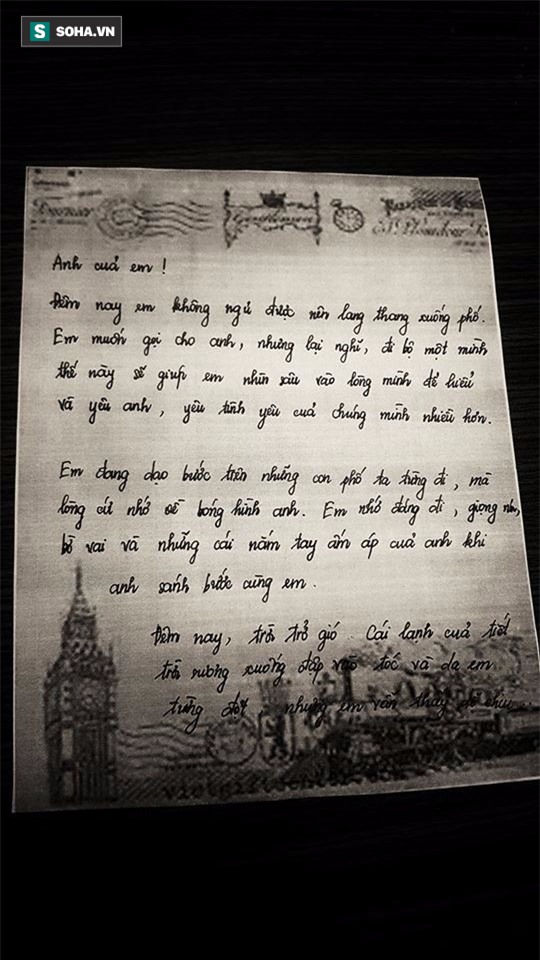 S SOHA.VN
Gentlemen
Anh của em !
Đêm nay em không ngủ được nên lang thang xuống phố.
Em muốn gọi cho anh, nhưng lại nghĩ, đi bộ một mình
thế này sẽ giúp em nhìn sâu vào lòng mình để hiểu
và yêu anh, yêu tình yêu của chúng mình nhiều hơn.
Em đang dạo bước trên những con phố ta từng đi, mà
lòng cứ nhớ về bóng hình anh. Em nhớ dáng đi, giọng nói,
bờ vai và những cái nắm tay ấm áp của anh khi
anh sánh bước cùng em.
Đêm nay, trời trở gió. Cái lạnh của tiết
trời sương xuống đập vào tóc và da em
từng đợt, nhưng em vẫn thấy dễ chịu...